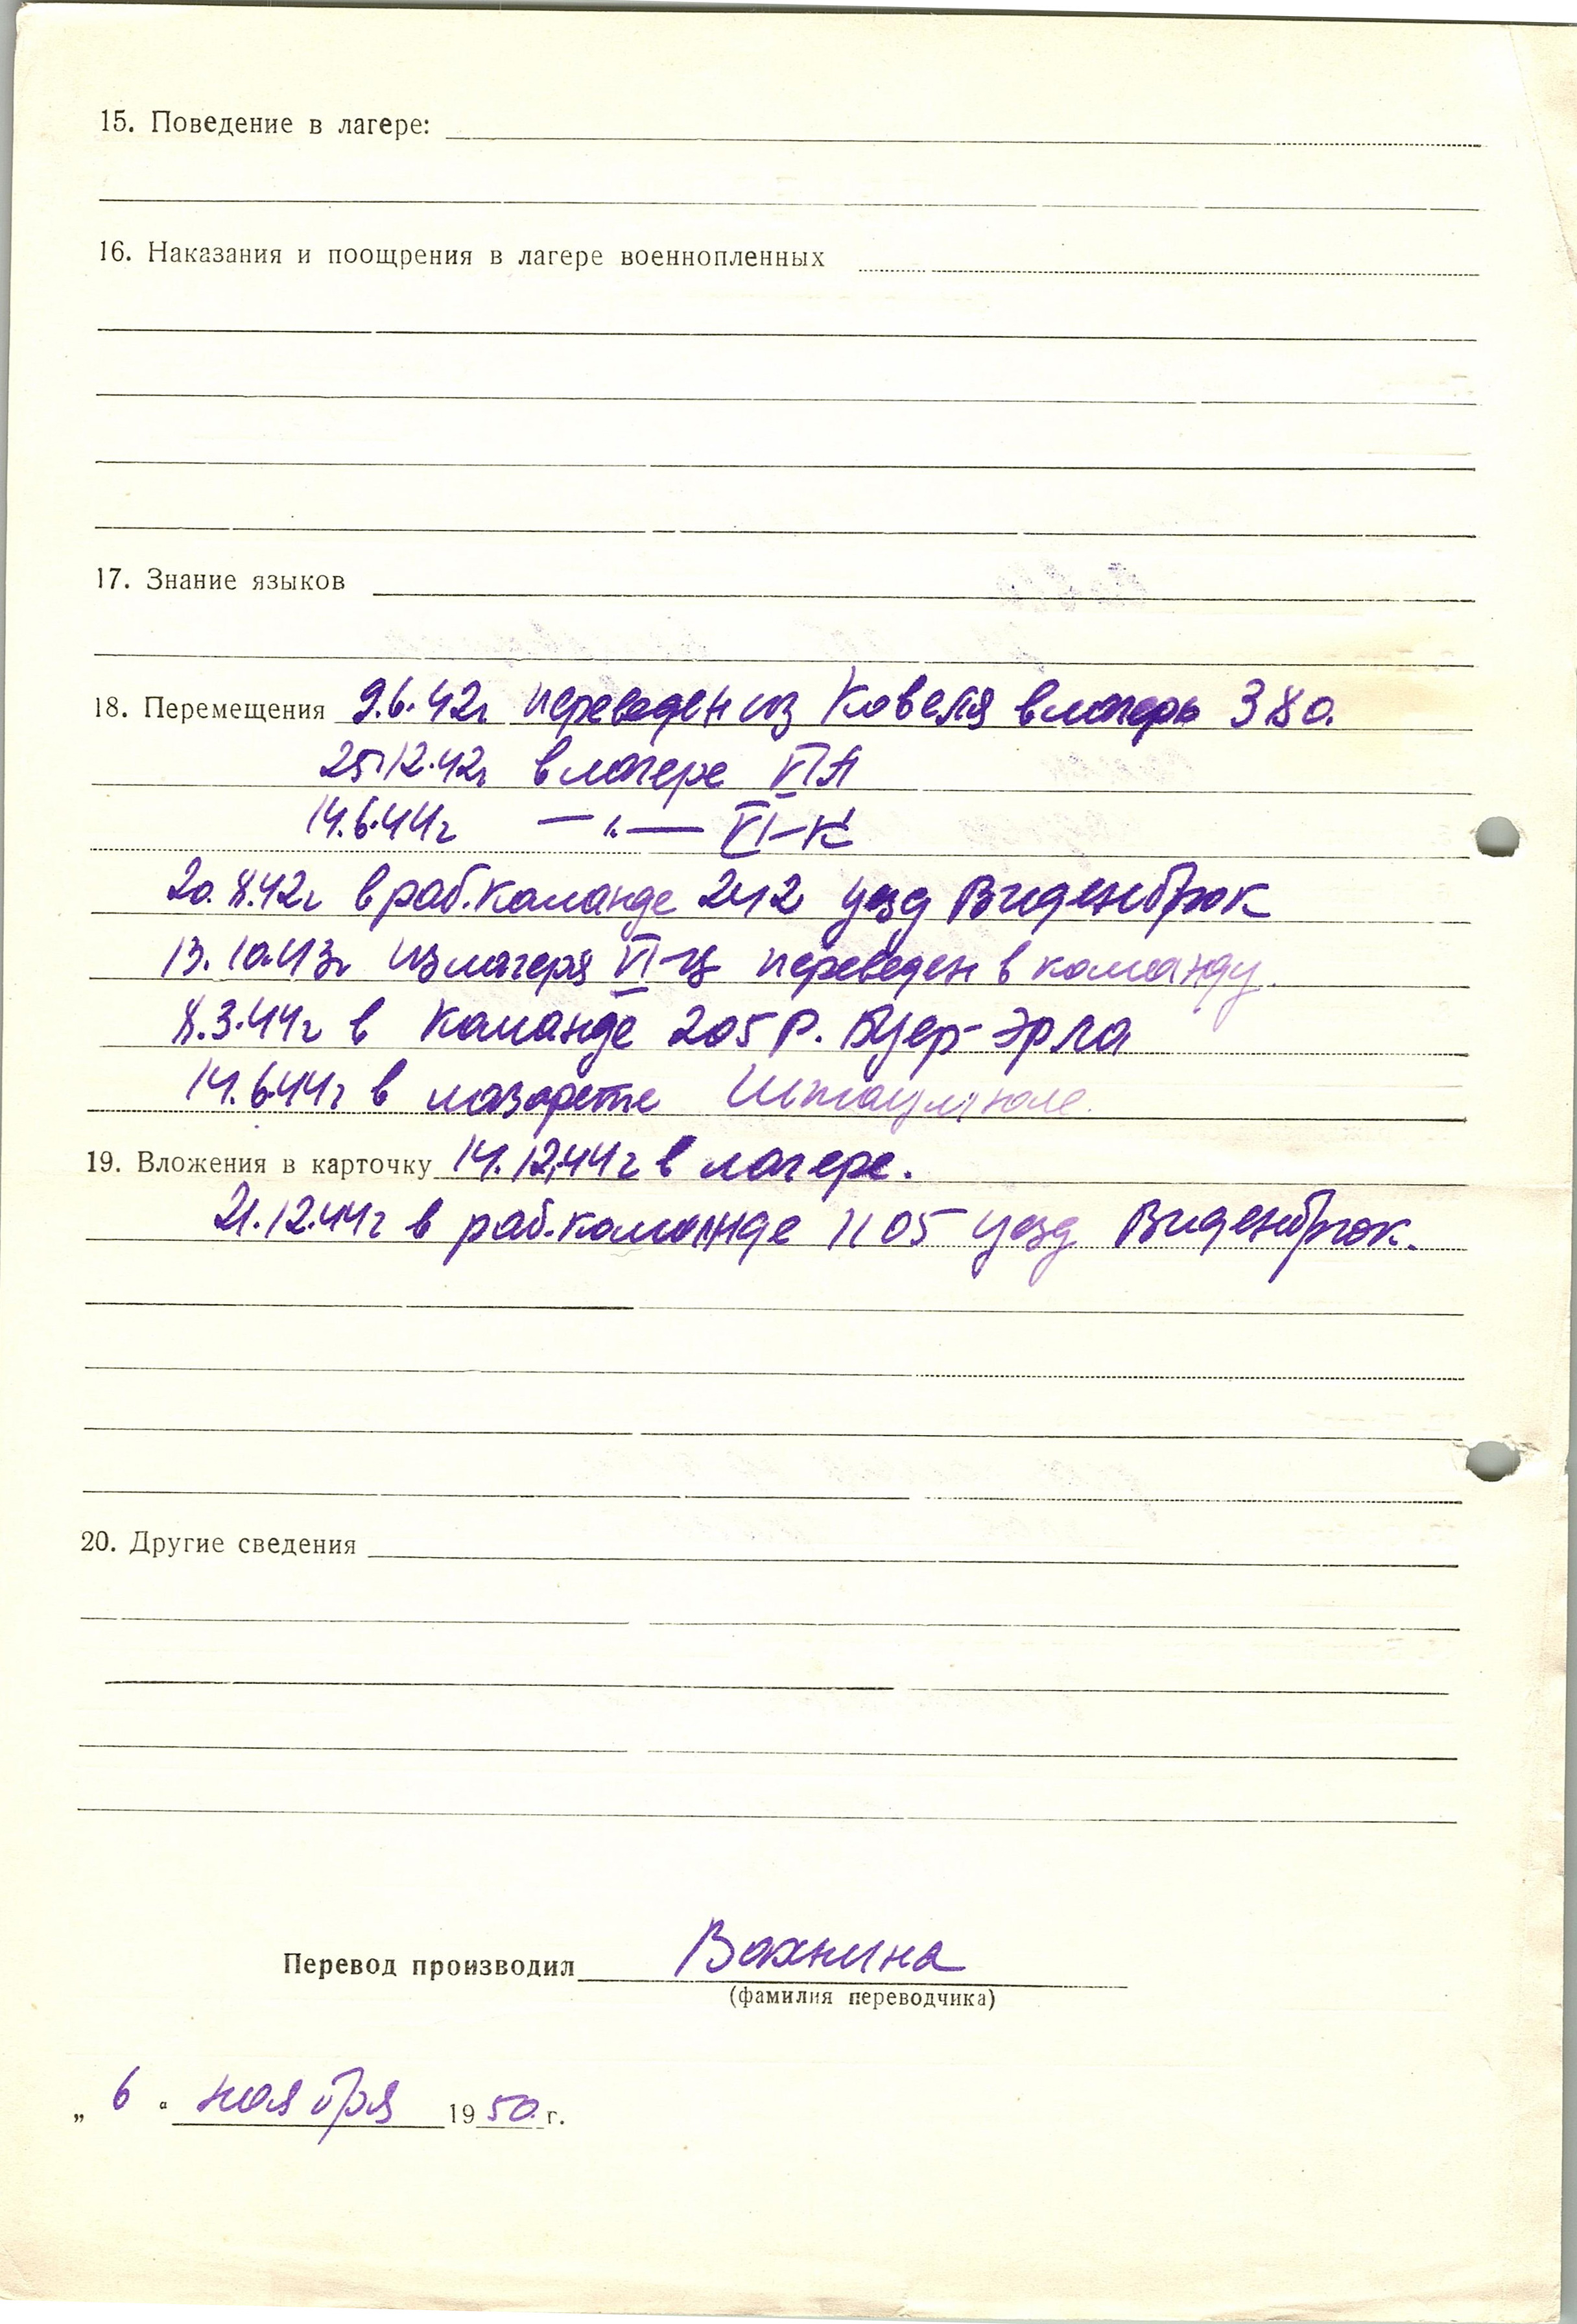 15. Поведение в лагере:
16. Наказания и поощрения в лагере военнопленных
17. Знание языков
18. Перемещения 9.6.42г переведен из Ковеля в лагерь 380.
25.12.42г в лагере VIA
14.6.44г — " — VI-К
20.8.42г в раб.команде 242 уезд Виденбрюк
13.10.43г из лагеря VI-Ц переведен в команду.
8.3.44г в команде 205 Р. Буер-Эрла
14.6.44г в лазарете
19. Вложения в карточку 14.12.44г в лагере.
21.12.44г в раб.команде 1105 уезд Виденбрюк.
20. Другие сведения
Перевод производил Вахнина
(фамилия переводчика)
„ 6 “ ноября 1950 г.